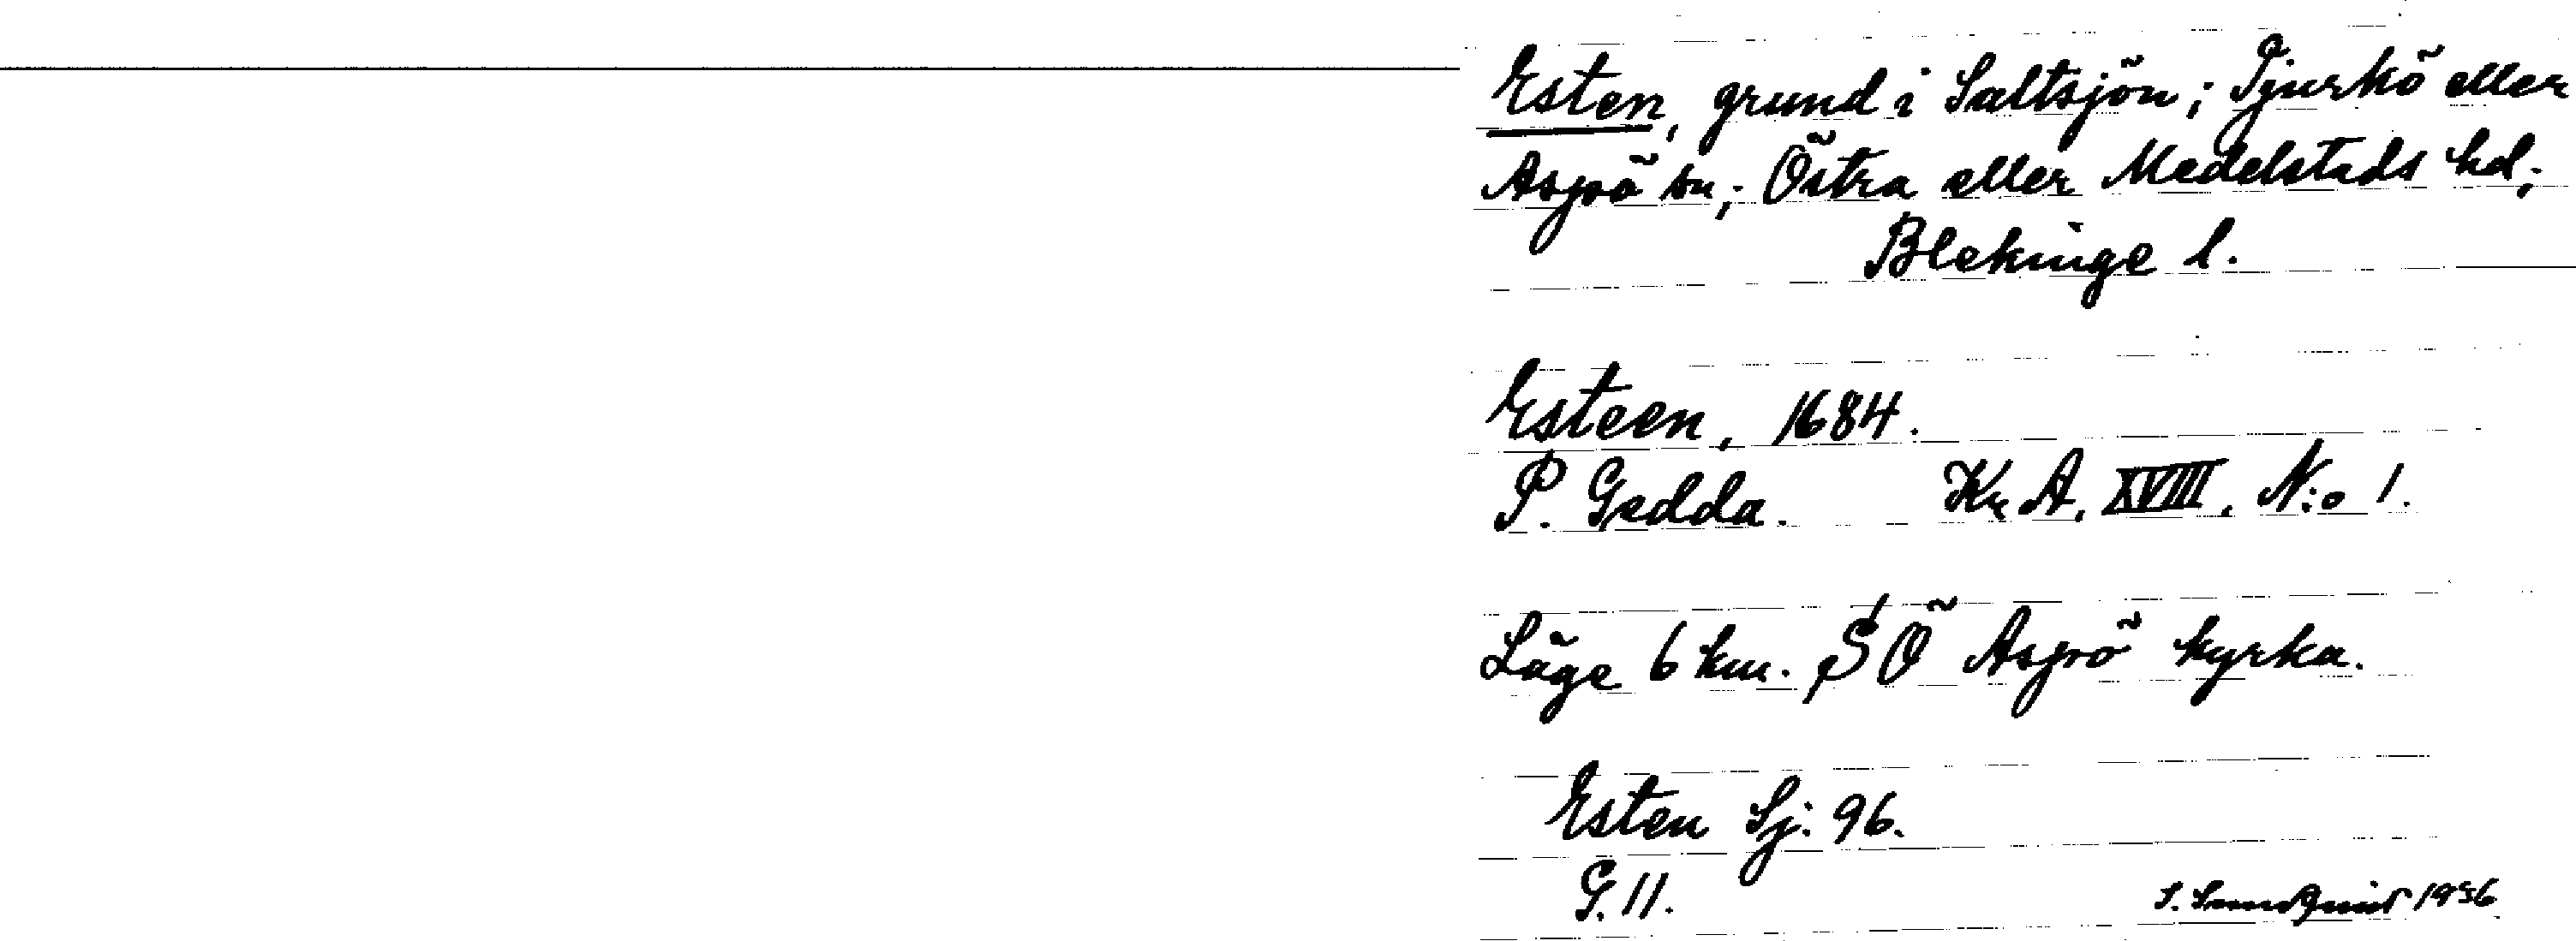 Esten, grund i Saltsjön; Tjurkö eller
Aspö sn; Östra eller Medelstads hd;
Blekinge l.
Esteen, 1684.
P. Gedda. Kr. A. XVIII. N:o 1.
Läge 6 km. SÖ Aspö kyrka.
Esten Sj. 96.
G. 11.
1956